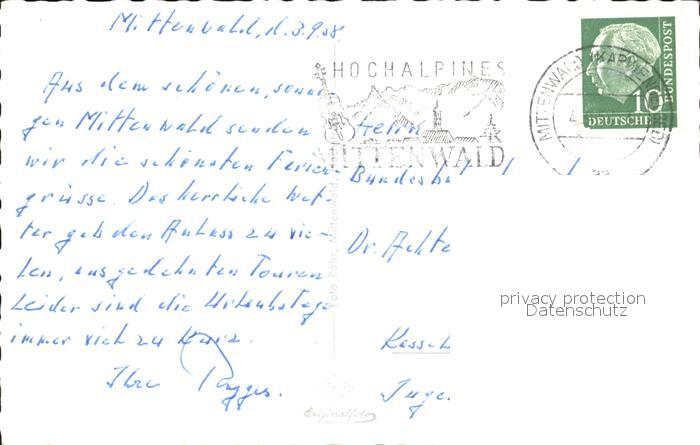 Mittenwald, d. 3.9.58.
Aus dem schönen, sonni-
gen Mittenwald senden
wir die schönsten Ferien-
grüsse. Das herrliche Wet-
ter gab den Anlass zu vie-
len, ausgedehnten Touren
Leider sind die Urlaubstage
immer viel zu kurz.
Ihre
HOCHALPINES
MITTENWALD
MITTENWALD (KARWE
10
DEUTSCHE
BUNDESPOST
Herrn
Bundesba
Dr. Achte
Kassel
Foto Röhr, Mittenwald
Originalfoto
privacy protection
Datenschutz